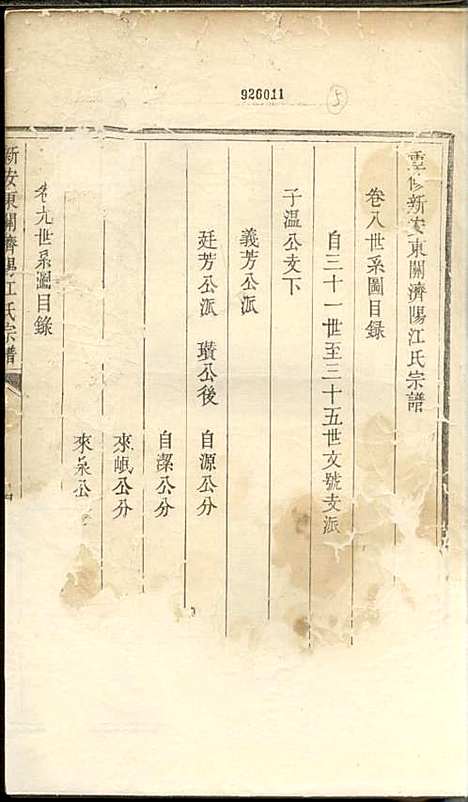 926011
5
重修新安東關濟陽江氏宗譜
卷八世系圖目錄
自三十一世至三十五世文號支派
子温公支下
義芳公派
廷芳公派 璜公後 自源公分
自潔公分
來岷公分
來泉公
卷九世系圖目錄
新安東關濟陽江氏宗譜